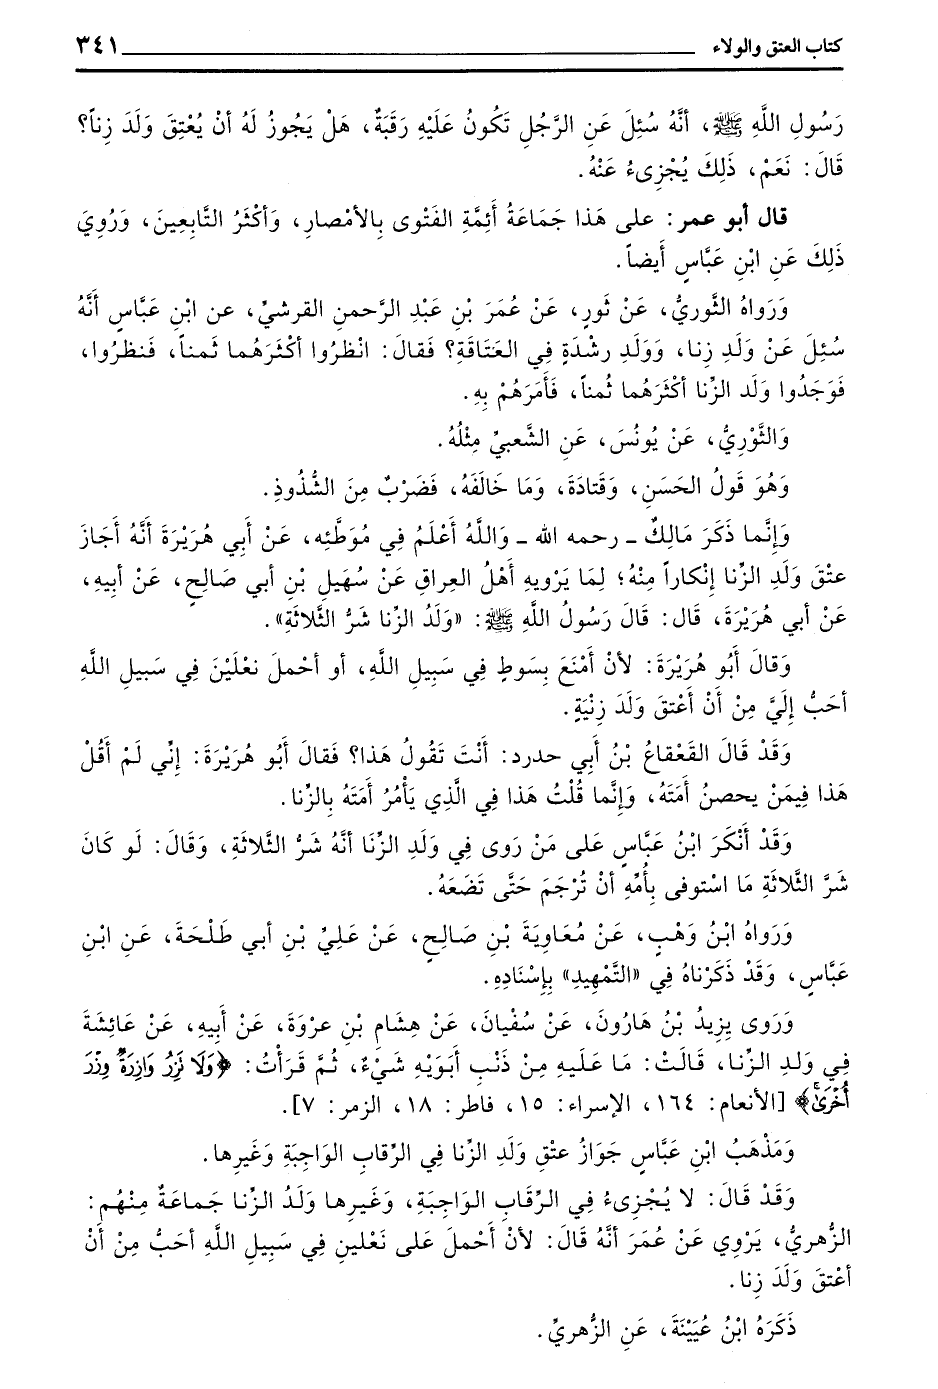 كتاب العتق والولاء ٣٤١
رَسُولِ اللَّهِ ﷺ، أَنَّهُ سُئِلَ عَنِ الرَّجُلِ تَكُونُ عَلَيْهِ رَقَبَةٌ، هَلْ يَجُوزُ لَهُ أنْ يُعْتِقَ وَلَدَ زِناً؟
قَالَ: نَعَمْ، ذَلِكَ يُجْزِىءُ عَنْهُ.
قال أبو عمر: على هَذا جَمَاعَةُ أَئِمَّةِ الفَتْوى بِالأمْصارِ، وَأكْثَرُ التَّابِعِينَ، وَرُوِيَ
ذَلِكَ عَنِ ابْنِ عَبَّاسٍ أَيضاً.
وَرَواهُ الثَّوريُّ، عَنْ ثَورٍ، عَنْ عُمَرَ بْنِ عَبْدِ الرَّحمنِ القرشيِّ، عن ابْنِ عَبَّاسٍ أَنَّهُ
سُئِلَ عَنْ وَلَدِ زِنا، وَوَلَدِ رشْدَةٍ فِي العَتَاقَةِ؟ فَقالَ: انْظرُوا أكْثَرَهُما ثَمناً، فَنظرُوا،
فَوَجَدُوا وَلَد الزِّنا أكْثَرَهُما ثُمناً، فَأَمَرَهُمْ بِهِ.
وَالثَّوْرِيُّ، عَنْ يُونُسَ، عَنِ الشَّعبيِّ مِثْلُهُ.
وَهُوَ قَولُ الحَسَنِ، وَقَتادَةَ، وَمَا خَالَفَهُ، فَضَرْبٌ مِنَ الشُّذُوذِ.
وَإِنَّما ذَكَرَ مَالِكٌ ـ رحمه الله ـ وَاللَّهُ أَعْلَمُ فِي مُوَطَّئِه، عَنْ أَبِي هُرَيْرَةَ أَنَّهُ أَجَازَ
عتْقَ وَلَدِ الزِّنا إنْكاراً مِنْهُ؛ لِمَا يَرْوِيهِ أهْلُ العِراقِ عَنْ سُهَيلِ بْنِ أبي صَالِحٍ، عَنْ أبِيهِ،
عَنْ أبي هُرَيْرَةَ، قَال: قَالَ رَسُولُ اللَّهِ ﷺ: «وَلَدُ الزِّنا شَرُّ الثَّلاثَةِ».
وَقالَ أَبُو هُرَيْرَةَ: لأنْ أَمْنَعَ بِسَوطٍ فِي سَبِيلِ اللَّهِ، أو أحْملَ نعْلَيْنَ فِي سَبيلِ اللَّهِ
أحَبُّ إِلَيَّ مِنْ أنْ أَعْتقَ وَلَدَ زِنْيَةٍ.
وَقَدْ قَالَ القَعْقاعُ بْنُ أبي حدرد: أَنْتَ تَقُولُ هَذا؟ فَقالَ أَبُو هُرَيْرَةَ: إنِّي لَمْ أَقُلْ
هَذا فِيمَنْ يحصنُ أَمَتَهُ، وَإِنَّما قُلْتُ هَذا فِي الَّذِي يَأْمُرُ أَمَتَهُ بِالزِّنا.
وَقَدْ أَنْكَرَ ابْنُ عَبَّاسٍ على مَنْ رَوى فِي وَلَدِ الزِّنَا أنَّهُ شَرُّ الثَّلاثَةِ، وَقَالَ: لَو كَانَ
شَرَّ الثَّلاثَةِ مَا اسْتوفى بِأُمِّهِ أنْ تُرْجَمَ حَتَّى تَضَعَهُ.
وَرَواهُ ابْنُ وَهْبٍ، عَنْ مُعَاوِيَةَ بْنِ صَالِحٍ، عَنْ عَلِيِّ بْنِ أبي طَلْحَةَ، عَنِ ابْنِ
عَبَّاسٍ، وَقَدْ ذَكَرْناهُ فِي «التَّمْهِيدِ» بِإِسْنَادِهِ.
وَرَوى يزِيدُ بْنُ هَارُونَ، عَنْ سُفْيانَ، عَنْ هِشَامِ بْنِ عرْوَةَ، عَنْ أَبِيهِ، عَنْ عَائِشَةَ
فِي وَلَدِ الزِّنا، قَالَتْ: مَا عَلَيهِ مِنْ ذَنْبِ أَبَوَيْهِ شَيْءٌ، ثُمَّ قَرَأَتْ: ﴿وَلَا نَزِرُ وَازِرَةٌ وِزْرَ
أُخْرَىٰۚ﴾ [الأنعام: ١٦٤، الإسراء: ١٥، فاطر: ١٨، الزمر: ٧].
وَمَذْهَبُ ابْنِ عَبَّاسٍ جَوَازُ عتْقِ وَلَدِ الزِّنا فِي الرِّقابِ الوَاجِبَةِ وَغَيرِها.
وَقَدْ قَالَ: لا يُجْزِىءُ فِي الرِّقَابِ الوَاجِبَةِ، وَغَيرِها وَلَدُ الزِّنا جَماعَةٌ مِنْهُم:
الزُّهريُّ، يَرْوِي عَنْ عُمَرَ أنَّهُ قَالَ: لأنْ أَحْملَ عَلى نَعْلَينِ فِي سَبِيلِ اللَّهِ أحَبُّ مِنْ أنْ
أعْتقَ وَلَدَ زِنا.
ذَكَرَهُ ابْنُ عُيَيْنَةَ، عَنِ الزُّهريِّ.